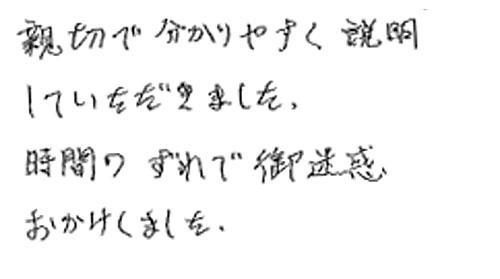 親切で分かりやすく説明
していただきました、
時間のずれで御迷惑
おかけしました.